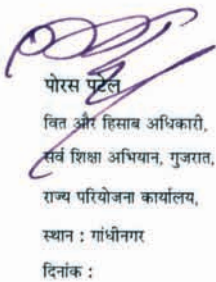 पोरस पटेल
वित और हिसाब अधिकारी,
सर्व शिक्षा अभियान, गुजरात,
राज्य परियोजना कार्यालय,
स्थान : गांधीनगर
दिनांक :